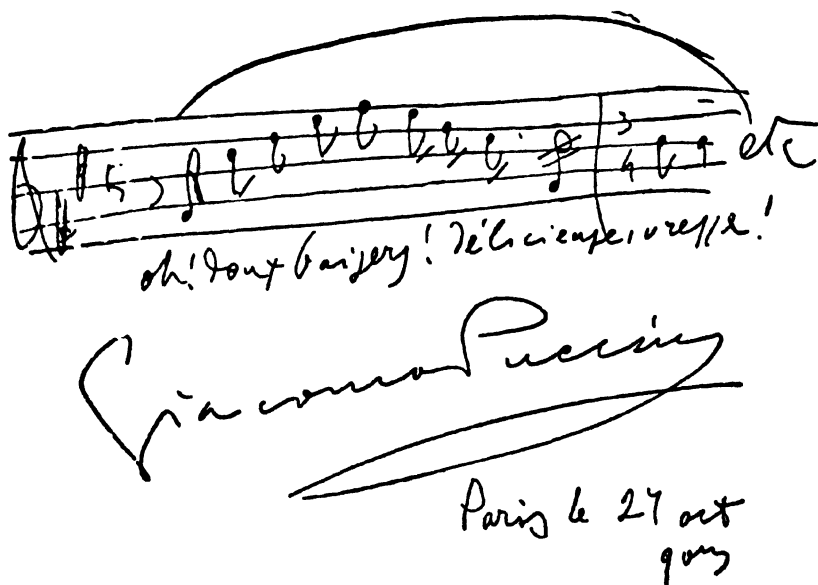 etc
oh! doux baisers! délicieuse ivresse!
Giacomo Puccini
Paris le 24 oct